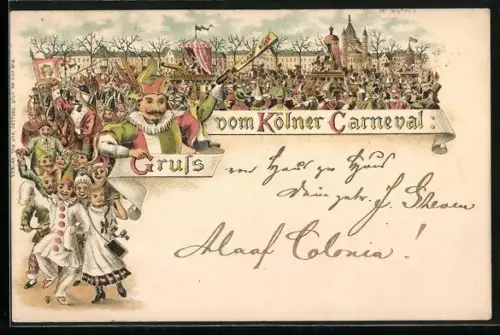 vom Kölner Carneval:
Gruſs
von Haus zu Haus
Dein getr. J.
Alaaf Colonia!